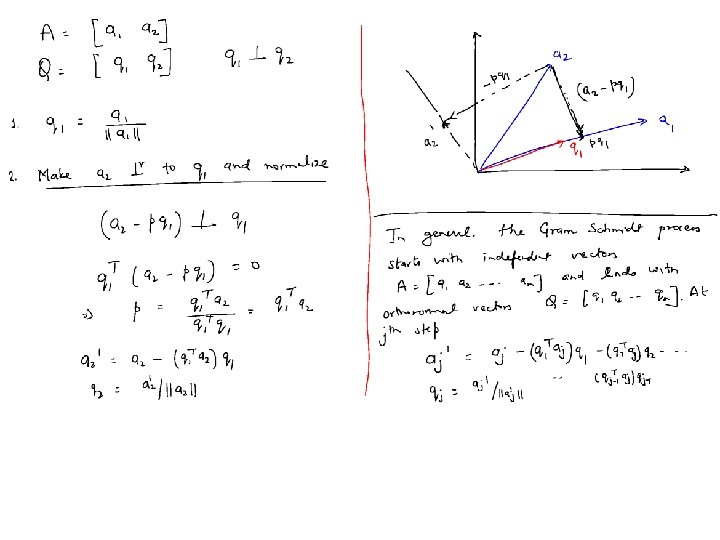 A = [a₁ a₂]
Q = [q₁ q₂] q₁ ⊥ q₂
1. q₁ = a₁ / ||a₁||
2. Make a₂ ⊥r to q₁ and normalize
(a₂ - pq₁) ⊥ q₁
q₁ᵀ (a₂ - pq₁) = 0
⇒ p = q₁ᵀa₂ / q₁ᵀq₁ = q₁ᵀa₂
a₂' = a₂ - (q₁ᵀa₂) q₁
q₂ = a₂' / ||a₂'||
a₂
-pq₁
(a₂ - pq₁)
a₁
a₂'
q₁
pq₁
In general, the Gram Schmidt process
starts with independent vectors
A = [a₁ a₂ --- aₙ] and ends with
orthonormal vectors Q = [q₁ q₂ -- qₙ]. At
jth step
aⱼ' = aⱼ - (q₁ᵀaⱼ) q₁ - (q₂ᵀaⱼ) q₂ - ---
-- (qⱼ₋₁ᵀaⱼ) qⱼ₋₁
qⱼ = aⱼ' / ||aⱼ'||